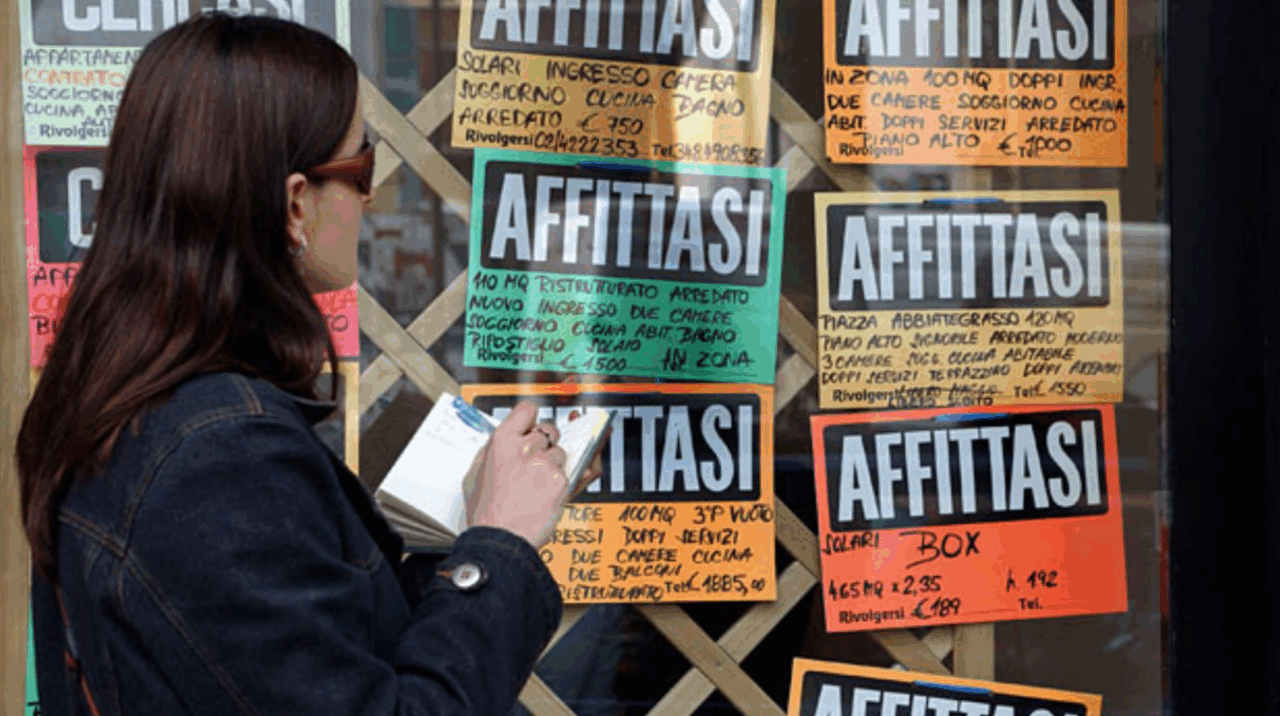 CERCASI
APPARTAMEN
CONTRATO
SOGGIORNO
CUCINA
Rivolgersi
C
AFFITTASI
SOLARI INGRESSO CAMERA
SOGGIORNO CUCINA BAGNO
ARREDATO € 750
Rivolgersi 02/4222353 Tel.
AFFITTASI
IN ZONA 100 MQ DOPPI INGR.
DUE CAMERE SOGGIORNO CUCINA
ABIT. DOPPI SERVIZI ARREDATO
PIANO ALTO € 1000
Rivolgersi Tel.
AFFITTASI
110 MQ RISTRUTTURATO ARREDATO
NUOVO INGRESSO DUE CAMERE
SOGGIORNO CUCINA ABIT. BAGNO
RIPOSTIGLIO SOLAIO
Rivolgersi € 1500 IN ZONA
AFFITTASI
PIAZZA ABBIATEGRASSO 120 MQ
PIANO ALTO SIGNORILE ARREDATO MODERNO
3 CAMERE SOGG. CUCINA ABITABILE
DOPPI SERVIZI TERRAZZINO DOPPI
Rivolgersi Tel. € 1550
LIBERO SUBITO
ITTASI
TORE 100 MQ 3°P VUOTO
RESSI DOPPI SERVIZI
O DUE CAMERE CUCINA
DUE BALCONI
ISTRUTTURATO Tel. € 1885,00
AFFITTASI
SOLARI BOX
4.65 MQ x 2,35 h. 192
Rivolgersi € 189 Tel.
AFFITTASI